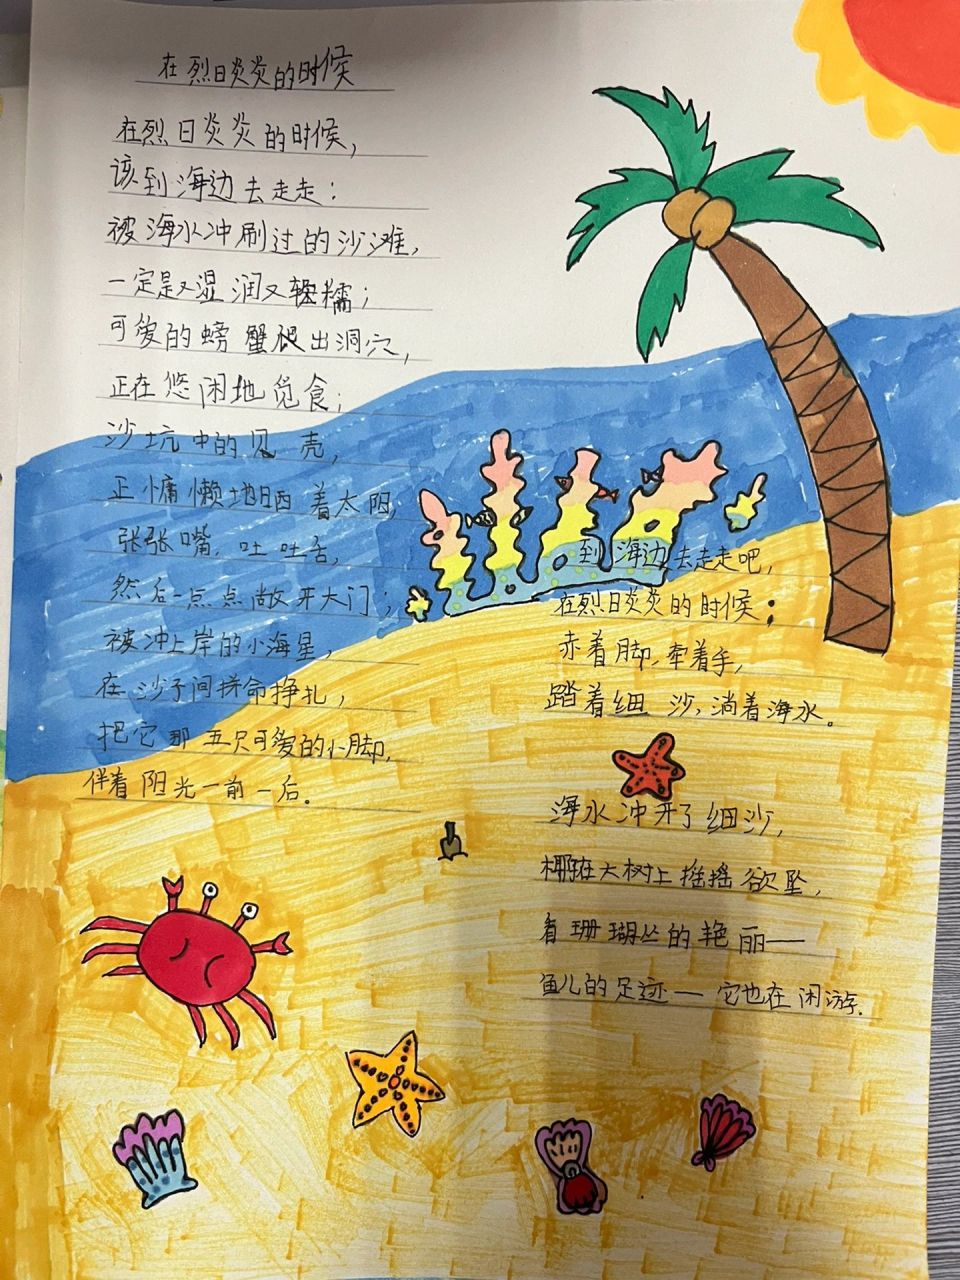 在烈日炎炎的时候
在烈日炎炎的时候，
该到海边去走走：
被海水冲刷过的沙滩，
一定是又湿润又软糯；
可爱的螃蟹爬出洞穴，
正在悠闲地觅食；
沙坑中的贝壳，
正慵懒地晒着太阳，
张张嘴，吐吐舌，
然后一点点敞开大门；
被冲上岸的小海星，
在沙子间拼命挣扎，
把它那五只可爱的小脚，
伴着阳光一前一后。
到海边去走走吧，
在烈日炎炎的时候：
赤着脚，牵着手，
踏着细沙，淌着海水。
海水冲开了细沙，
椰在大树上摇摇欲坠，
看珊瑚丛的艳丽——
鱼儿的足迹——它也在闲游.